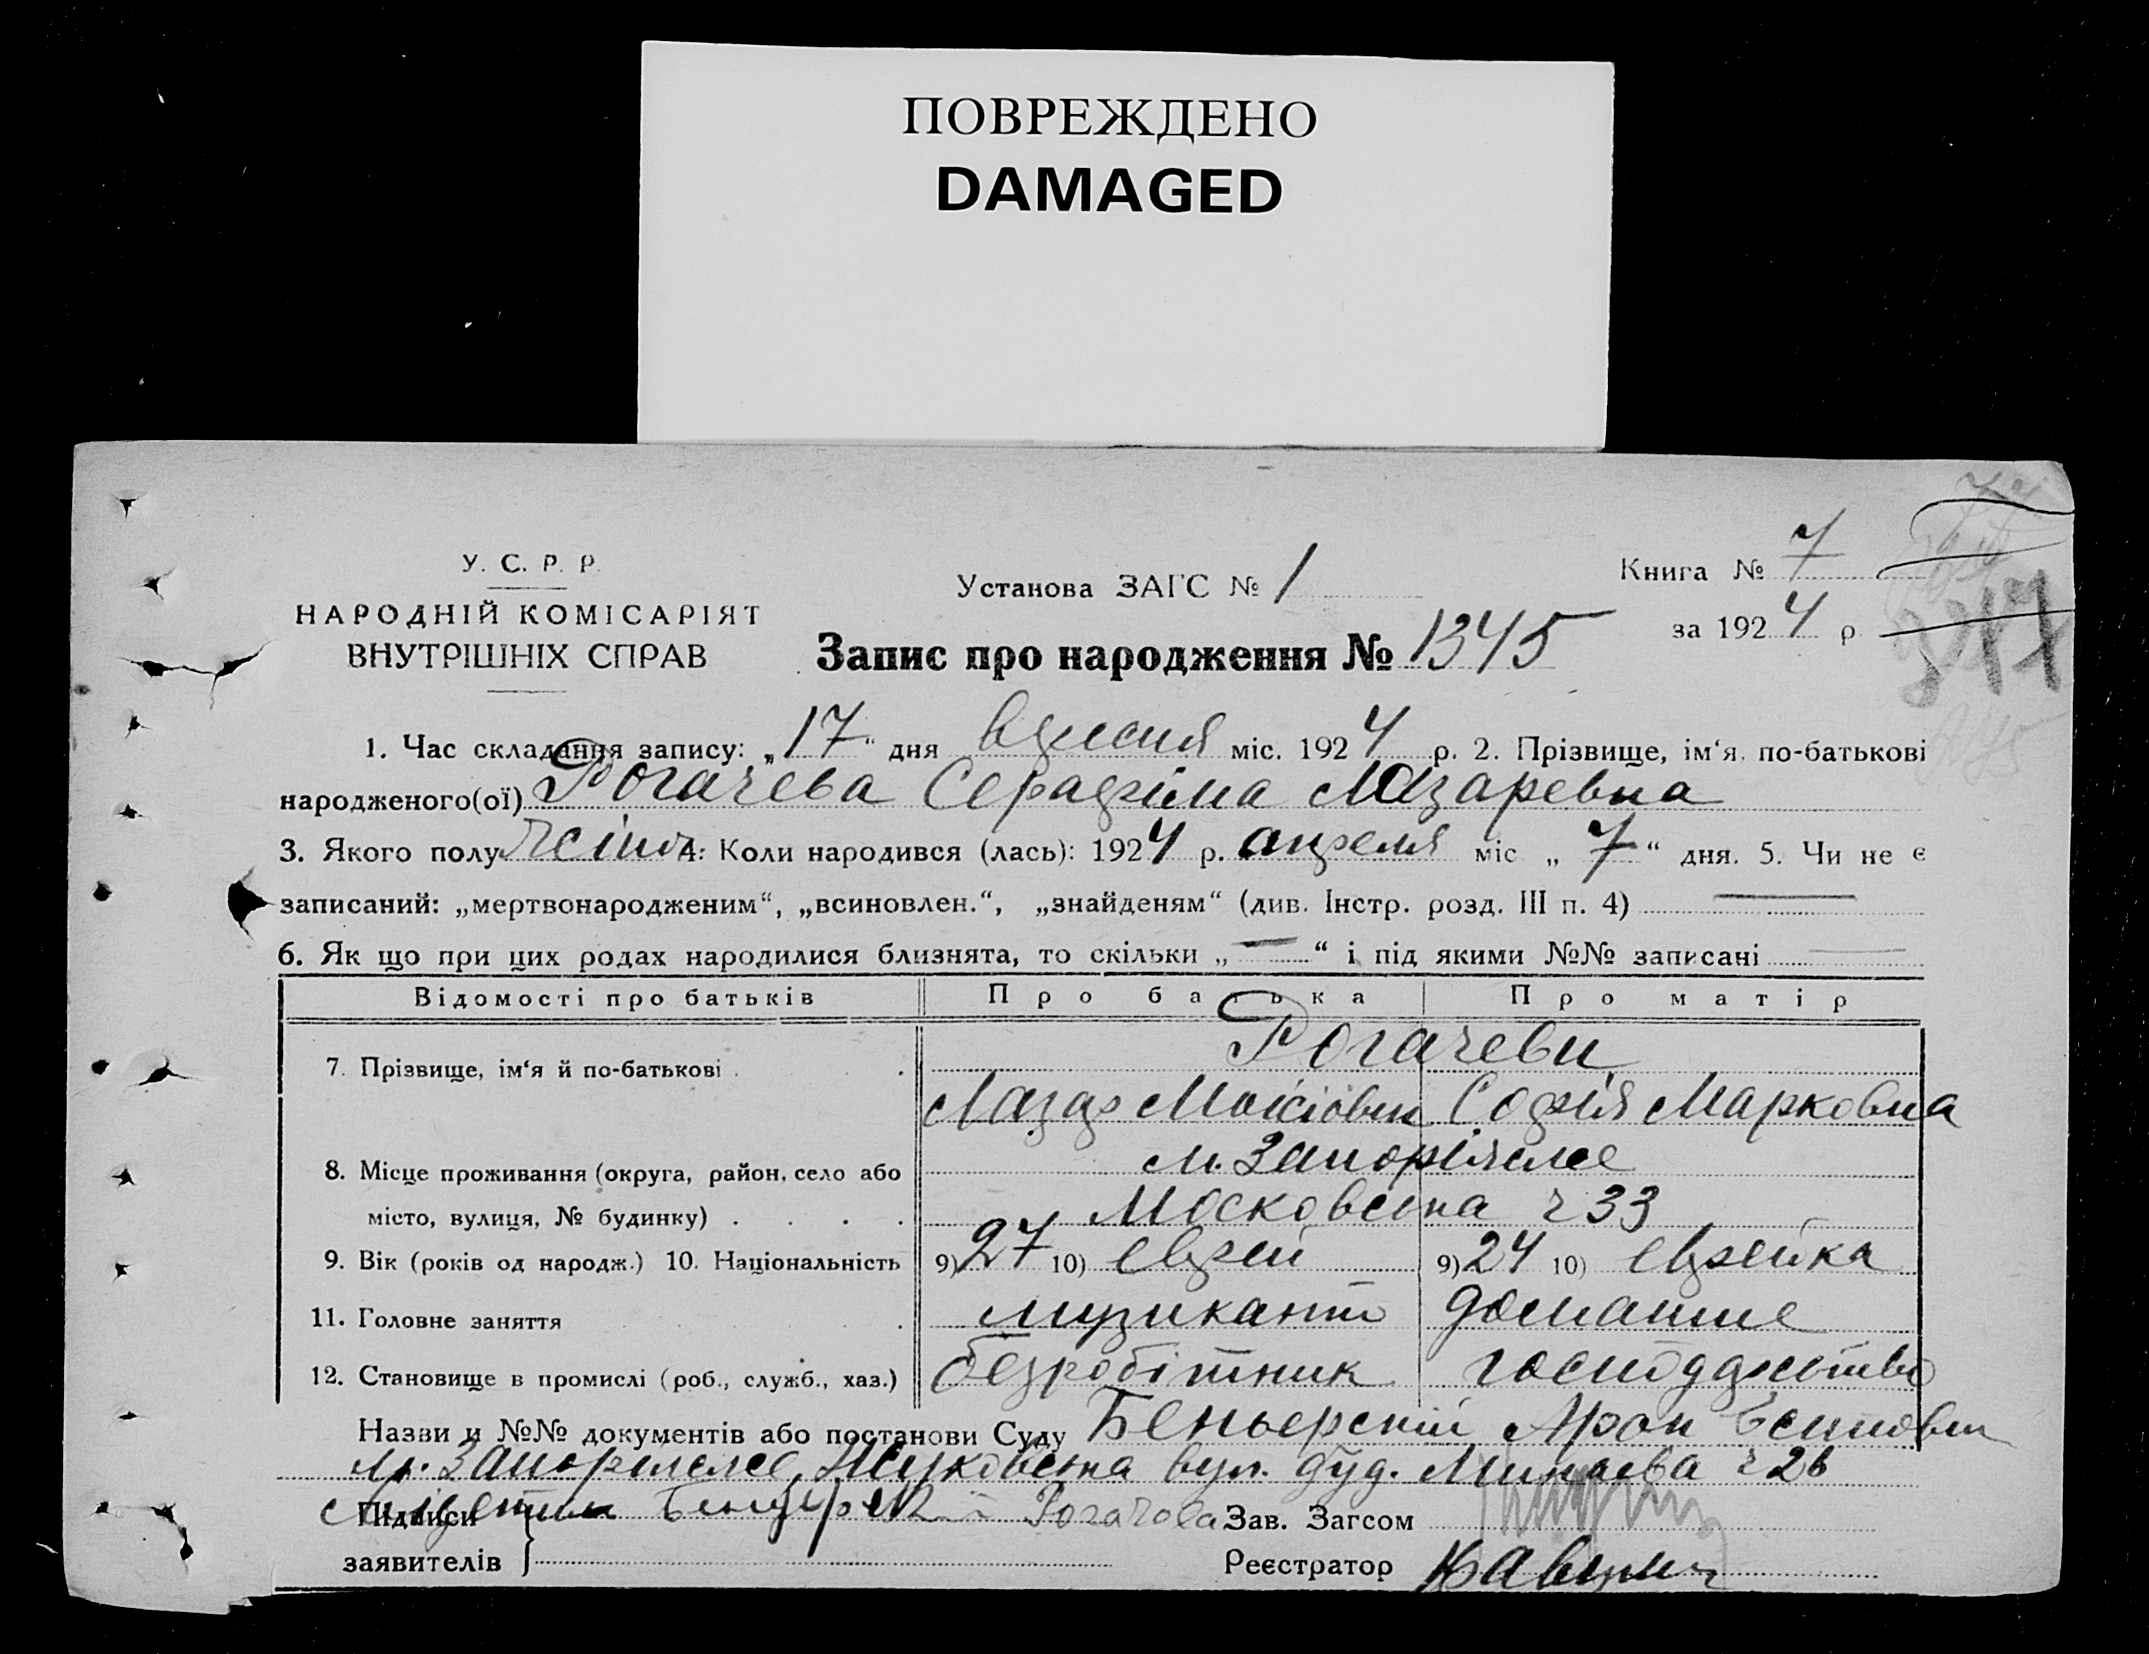 ПОВРЕЖДЕНО
DAMAGED
У. С. Р. Р.
НАРОДНІЙ КОМІСАРІЯТ
ВНУТРІШНІХ СПРАВ
Установа ЗАГС № 1
Запис про народження № 1345
Книга № 7
за 1924 р.
1. Час складання запису: „17“ дня вересня міс. 1924 р. 2. Прізвище, ім‘я, по-батькові
народженого(ої) Рогачева Серафіма Лазаревна
3. Якого полу жіноч. 4. Коли народився (лась): 1924 р. апреля міс „7“ дня. 5. Чи не є
записаний: „мертвонародженим“, „всиновлен.“, „знайденям“ (див. Інстр. розд. III п. 4) —
6. Як що при цих родах народилися близнята, то скільки „—“ і під якими №№ записані —
Відомості про батьків Про батька Про матір
7. Прізвище, ім‘я й по-батькові Рогачеви
Лазар Мойсіович Софія Марковна
8. Місце проживання (округа, район, село або м. Запоріжже
місто, вулиця, № будинку) Московська ч 33
9. Вік (років од народж.) 10. Національність 9) 27 10) еврей 9) 24 10) еврейка
11. Головне заняття музикант домашне
12. Становище в промислі (роб., служб., хаз.) безробітник господарство
Назви и №№ документів або постанови Суду Арон
м. Запоріжже, Жуковська вул. буд. Минаева ч 26
Підписи Рогачова Зав. Загсом
заявителів Реєстратор